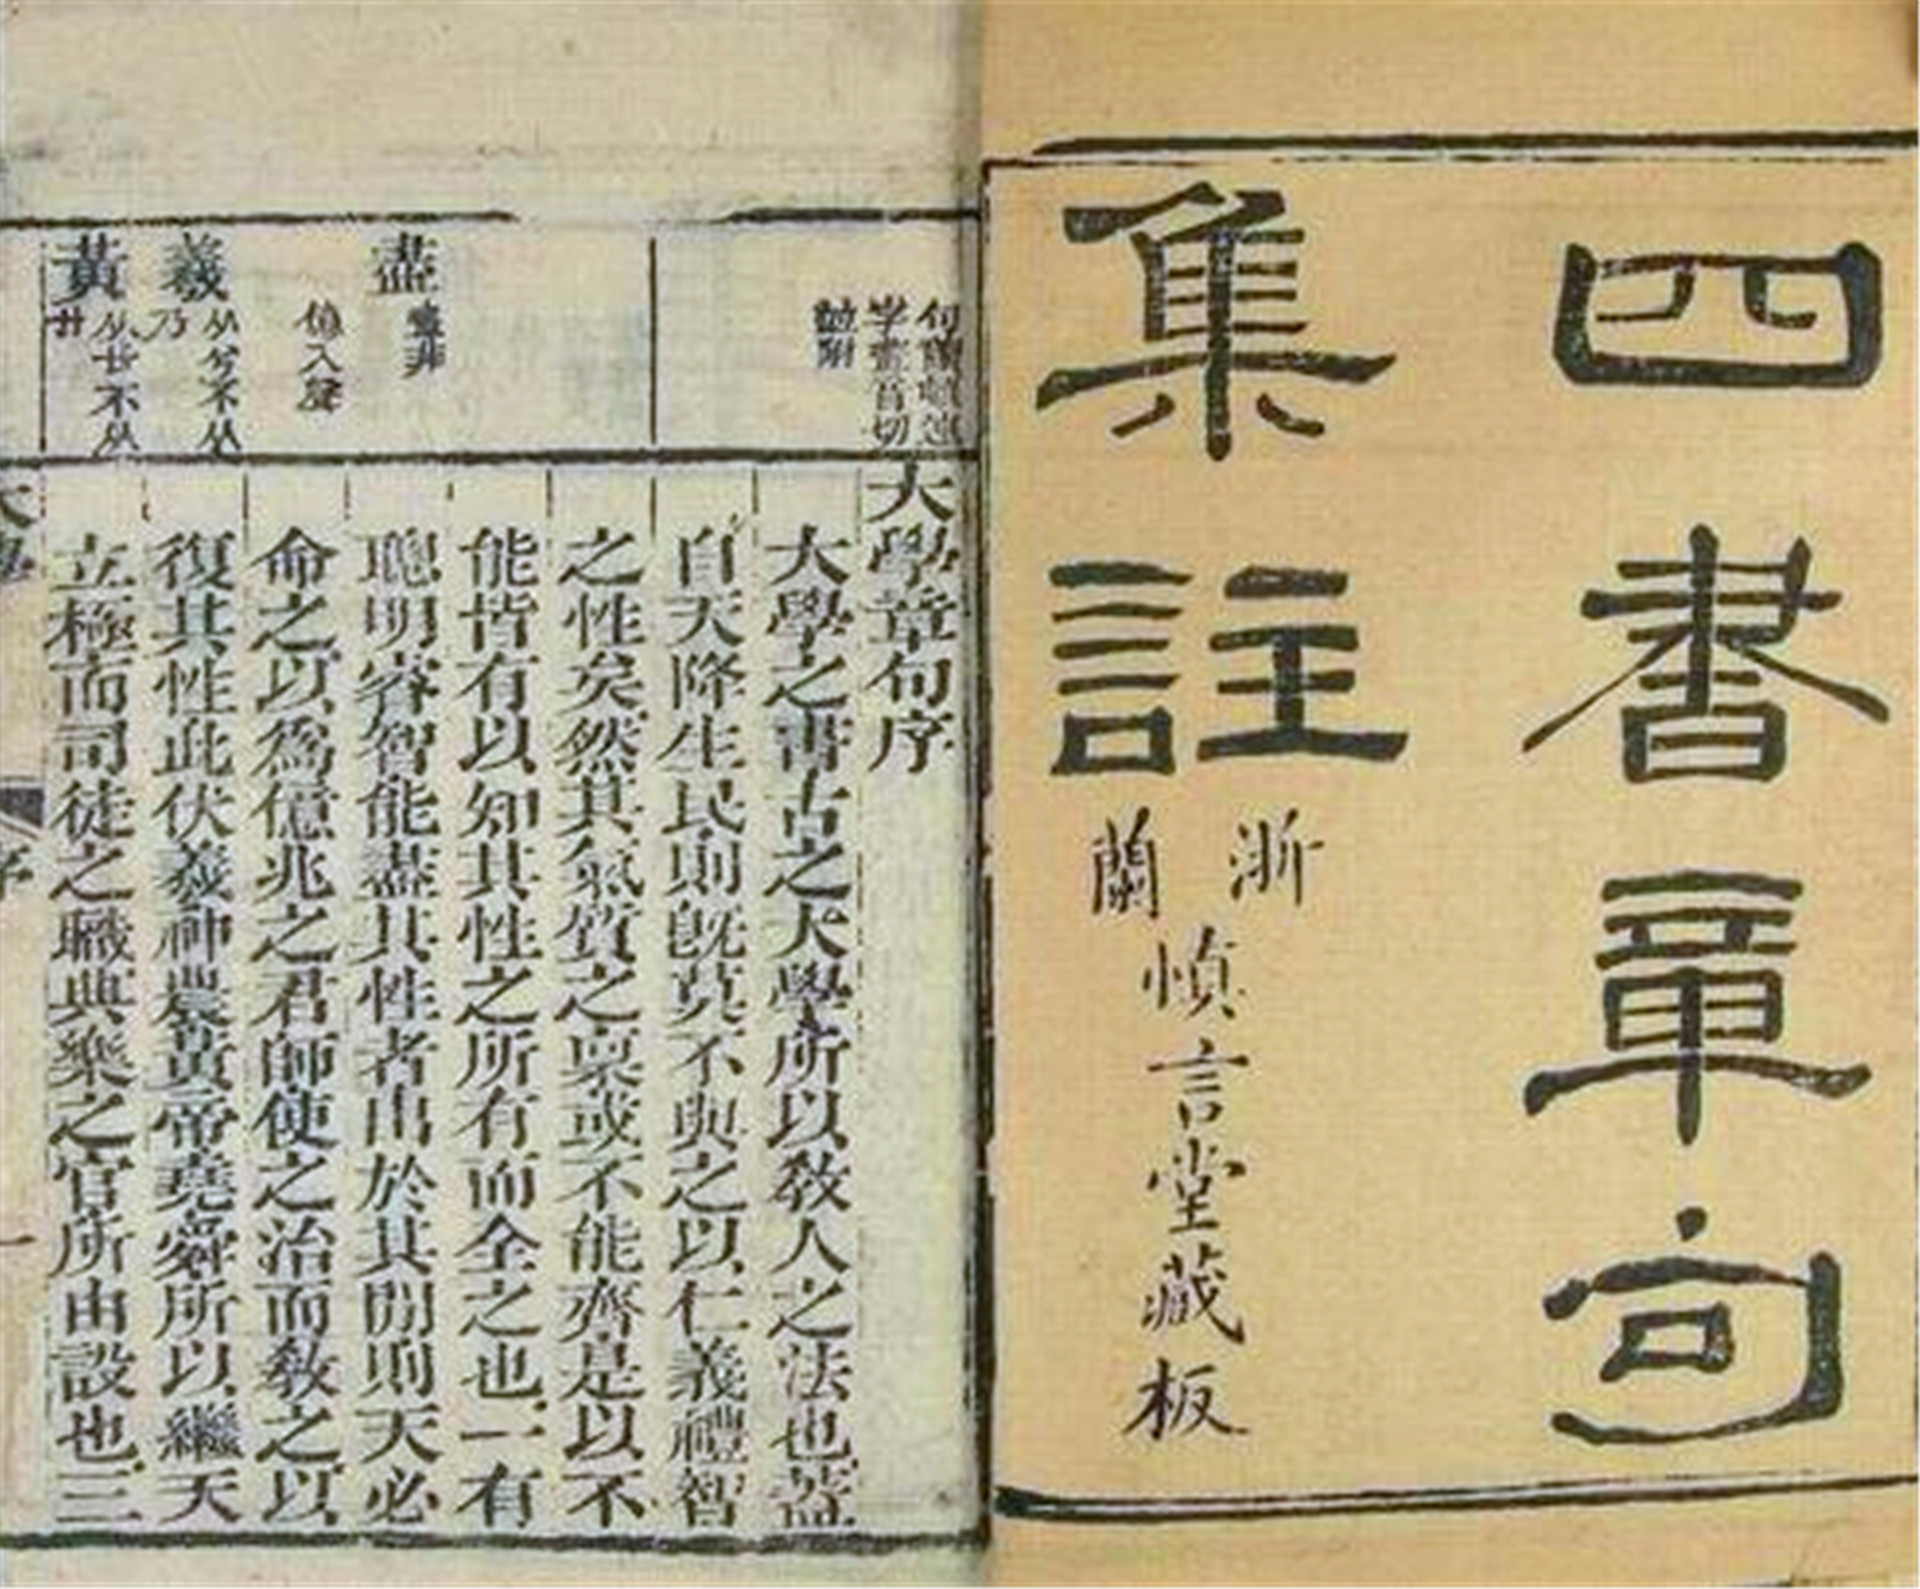 四書章句
集註
浙
蘭
慎言堂藏板
大學章句序
大學之書古之大學所以教人之法也蓋
自天降生民則既莫不與之以仁義禮智
之性矣然其氣質之稟或不能齊是以不
能皆有以知其性之所有而全之也一有
聰明睿智能盡其性者出於其閒則天必
命之以爲億兆之君師使之治而教之以
復其性此伏羲神農黃帝堯舜所以繼天
立極而司徒之職典樂之官所由設也三
盡
羲
从兮不从
乃
黃
从廿不从
廾